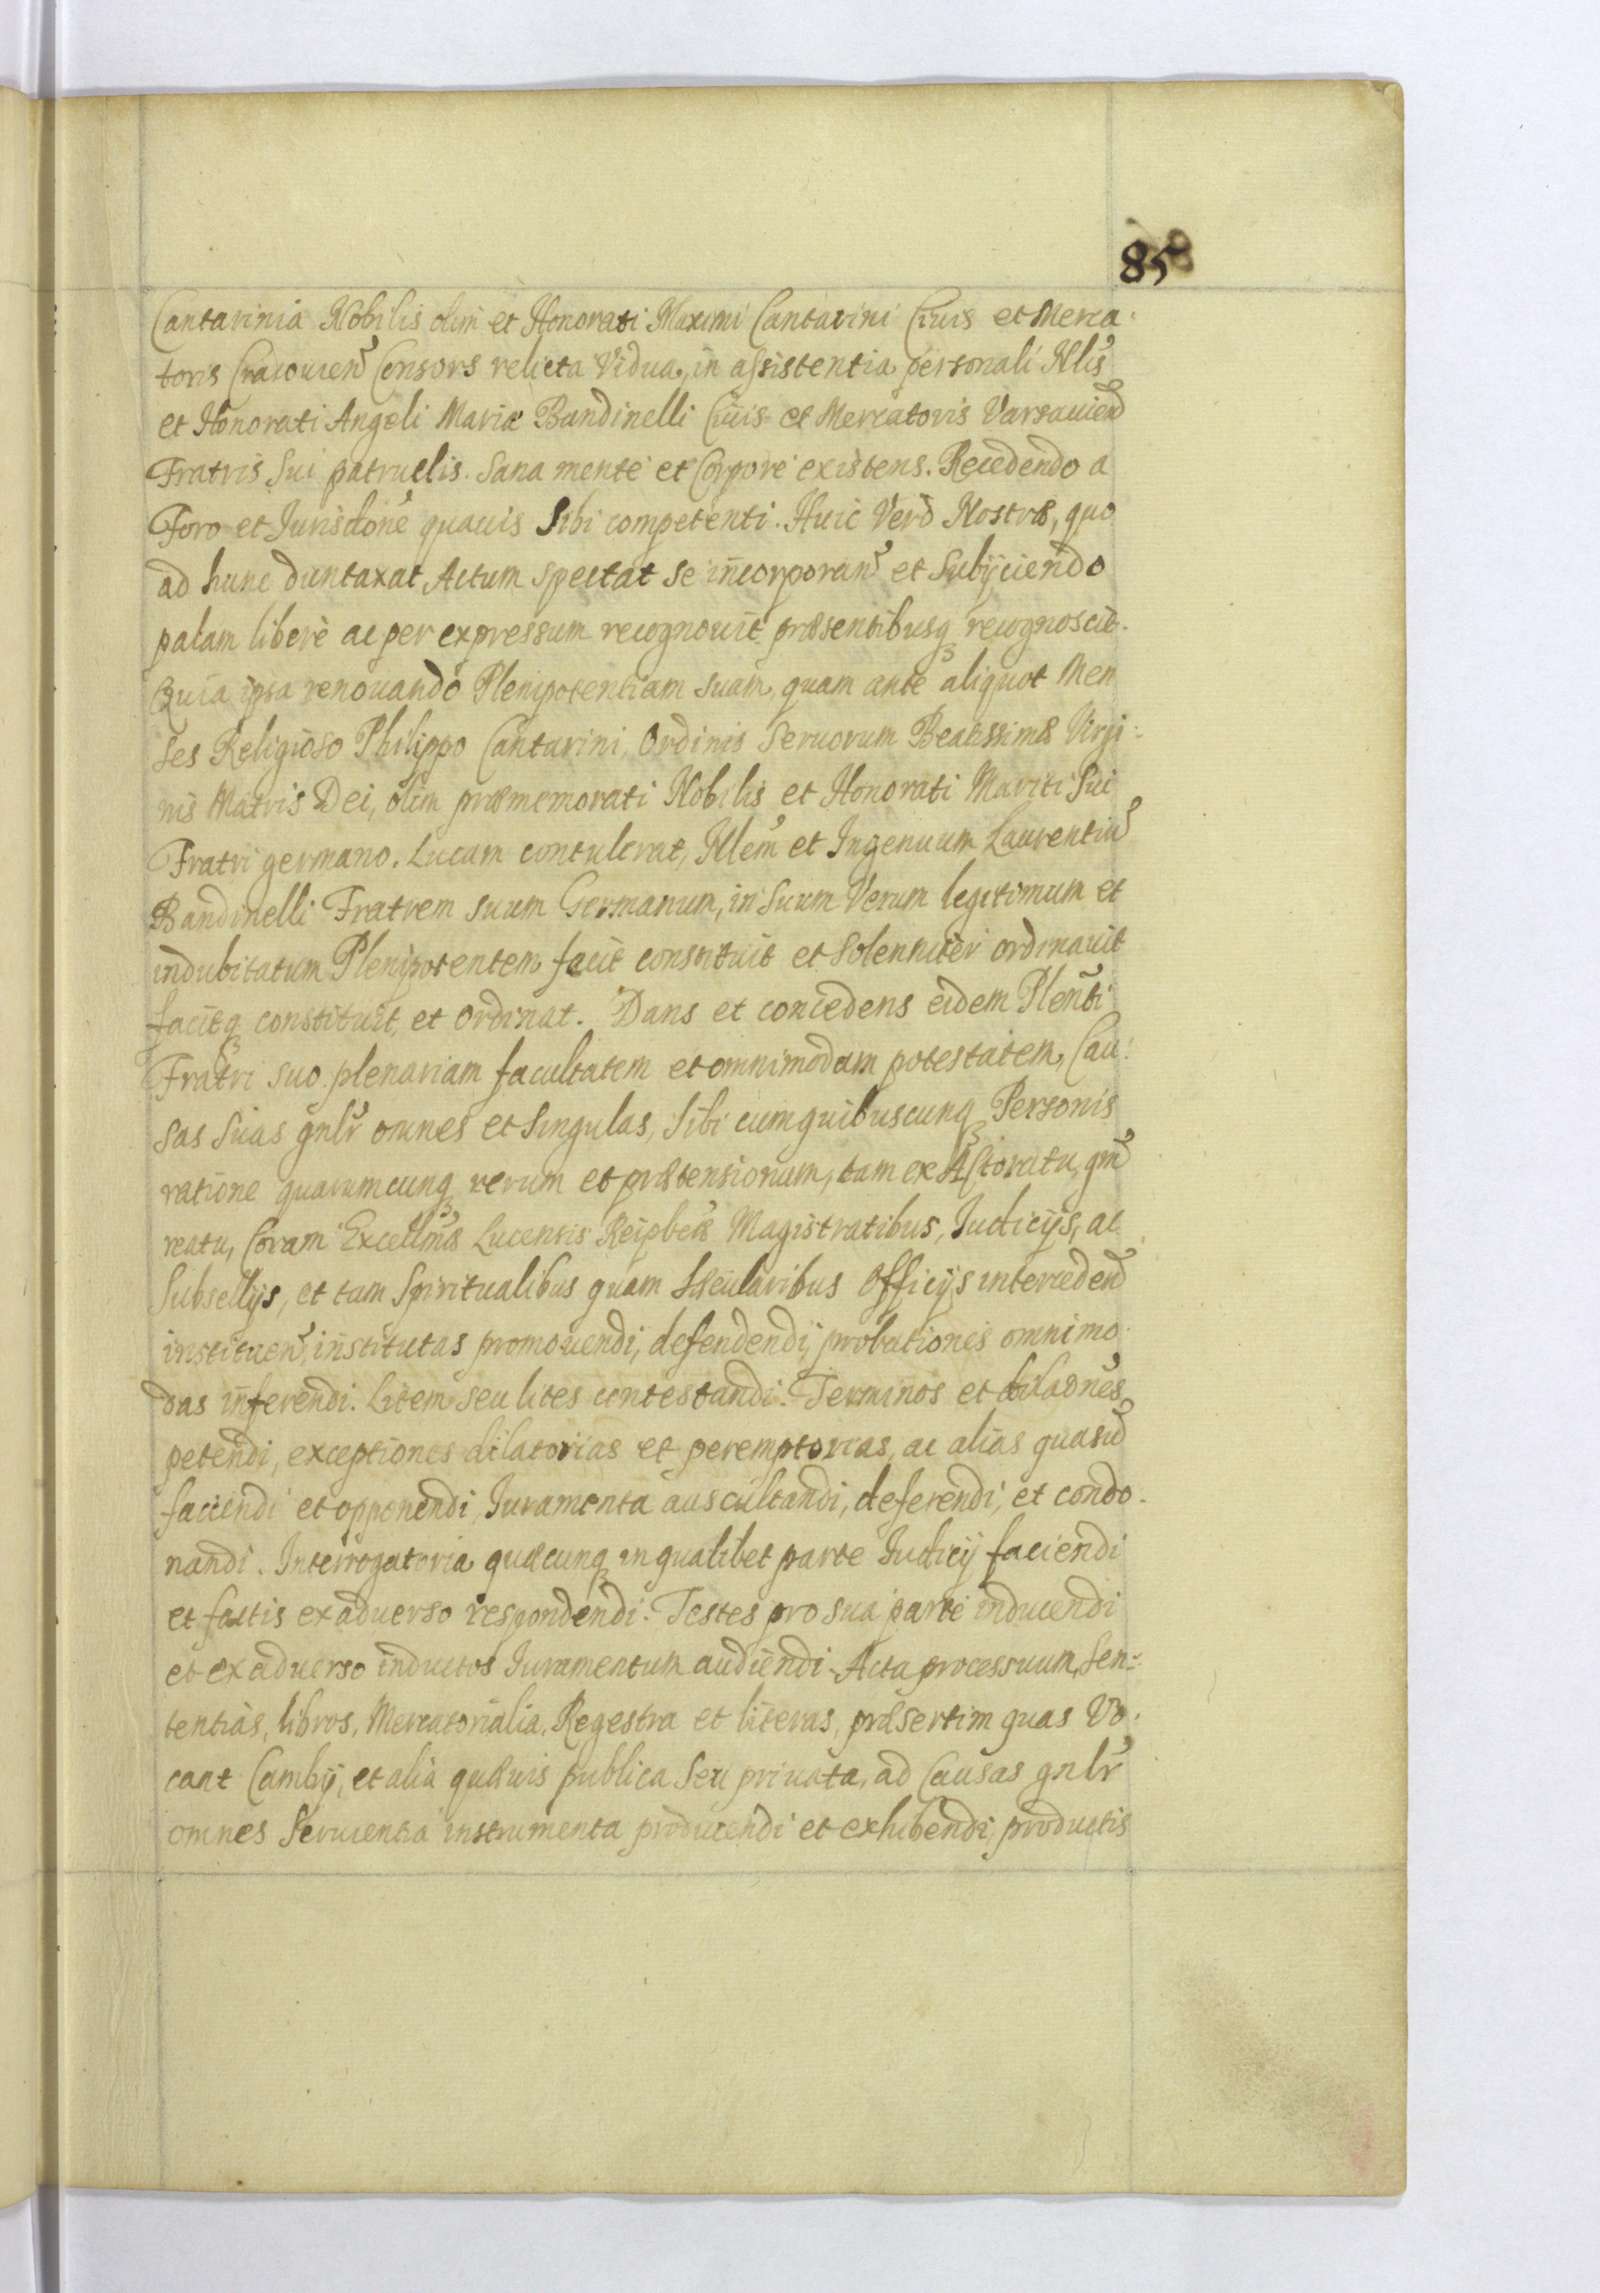 85
Cantarinia Nobilis olim et Honorati Maximi Cantarini Ciuis et Merca:
toris Cracouien Consors relicta Vidua, in assistentia personali Nlis
et Honorati Angeli Mariæ Bandinelli Ciuis et Mercatoris Varsauien
Fratris Sui patruelis. Sana mente et Corpore existens. Recedendo a
Foro et Jurisdone quauis Sibi competenti. Huic Verò Nostræ, quo
ad hunc duntaxat Actum spectat se incorporan et Subijciendo
palam liberè ac per expressum recognouit præsentibusq recognoscit.
Quia ipsa renouando Plenipotentiam suam, quam ante aliquot Men
ses Religioso Philippo Cantarini, Ordinis Seruorum Beatissimæ Virgi:
nis Matris Dei, olim præmemorati Nobilis et Honorati Mariti Sui
Fratri germano. Lucam contulerat, Nlem et Ingenuum Laurentiu
Bandinelli Fratrem suum Germanum, in Suum Verum legitimum et
indubitatum Plenipotentem facit constituit et Solenniter ordinauit
facitq constituit, et Ordinat. Dans et concedens eidem Plenti
Fratri suo plenariam facultatem et omnimodam potestatem, Cau:
sas Suas gnlr omnes et Singulas, Sibi cum quibuscunq Personis
ratione quarumcunq rerum et prætensionum, tam ex Actoratu, qm
reatu, Coram Excellmis Lucensis Reipbcæ Magistratibus, Judicijs, ac
Subsellijs, et tam Spiritualibus quam Sæcularibus Officijs interceden
instituen, institutas promouendi, defendendi, probationes omnimo:
das inferendi. Litem seu lites contestandi. Terminos et dilaones
petendi, exceptiones dilatorias et peremptorias, ac alias quasuis
faciendi et opponendi, Juramenta auscultandi, deferendi, et condo.
nandi. Interrogatoria quæcunq in qualibet parte Judicij faciendi
et factis ex aduerso respondendi. Testes pro sua parte inducendi
et ex aduerso inductos Juramentum audiendi. Acta processuum, Sen:
tentias, libros, Mercatorialia, Regestra et literas, præsertim quas Vo:
cant Cambij, et alia quæuis publica Seu priuata, ad Causas gnlr
omnes Seruientia instrumenta producendi et exhibendi, productis